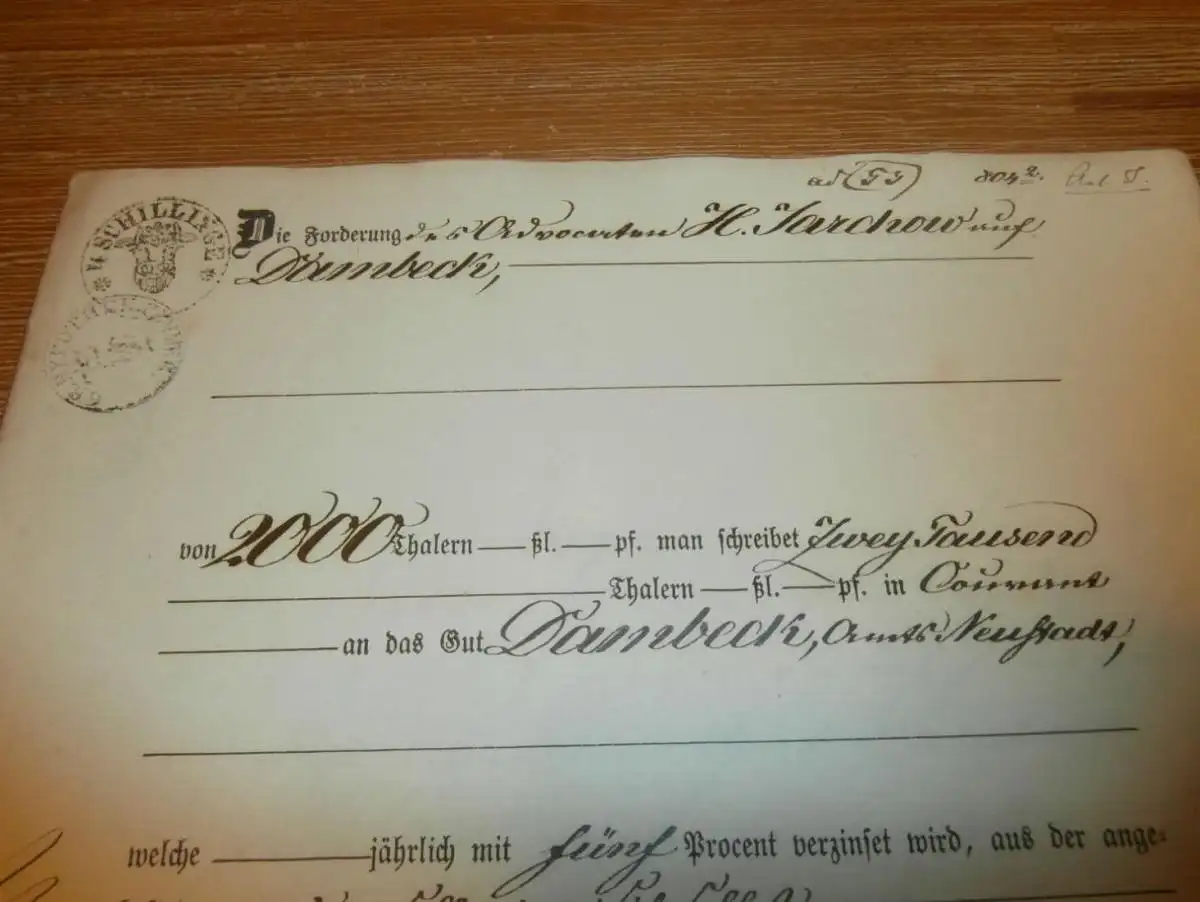 ad (53)
4 SCHILLINGE
Die Forderung des Advocaten H. Jarchow auf
Dambeck,
von 2000 Thalern — ßl. — pf. man schreibet Zwey Tausend
Thalern — ßl. — pf. in Courant
an das Gut Dambeck, Amts Neustadt,
welche jährlich mit fünf Procent verzinset wird, aus der ange-